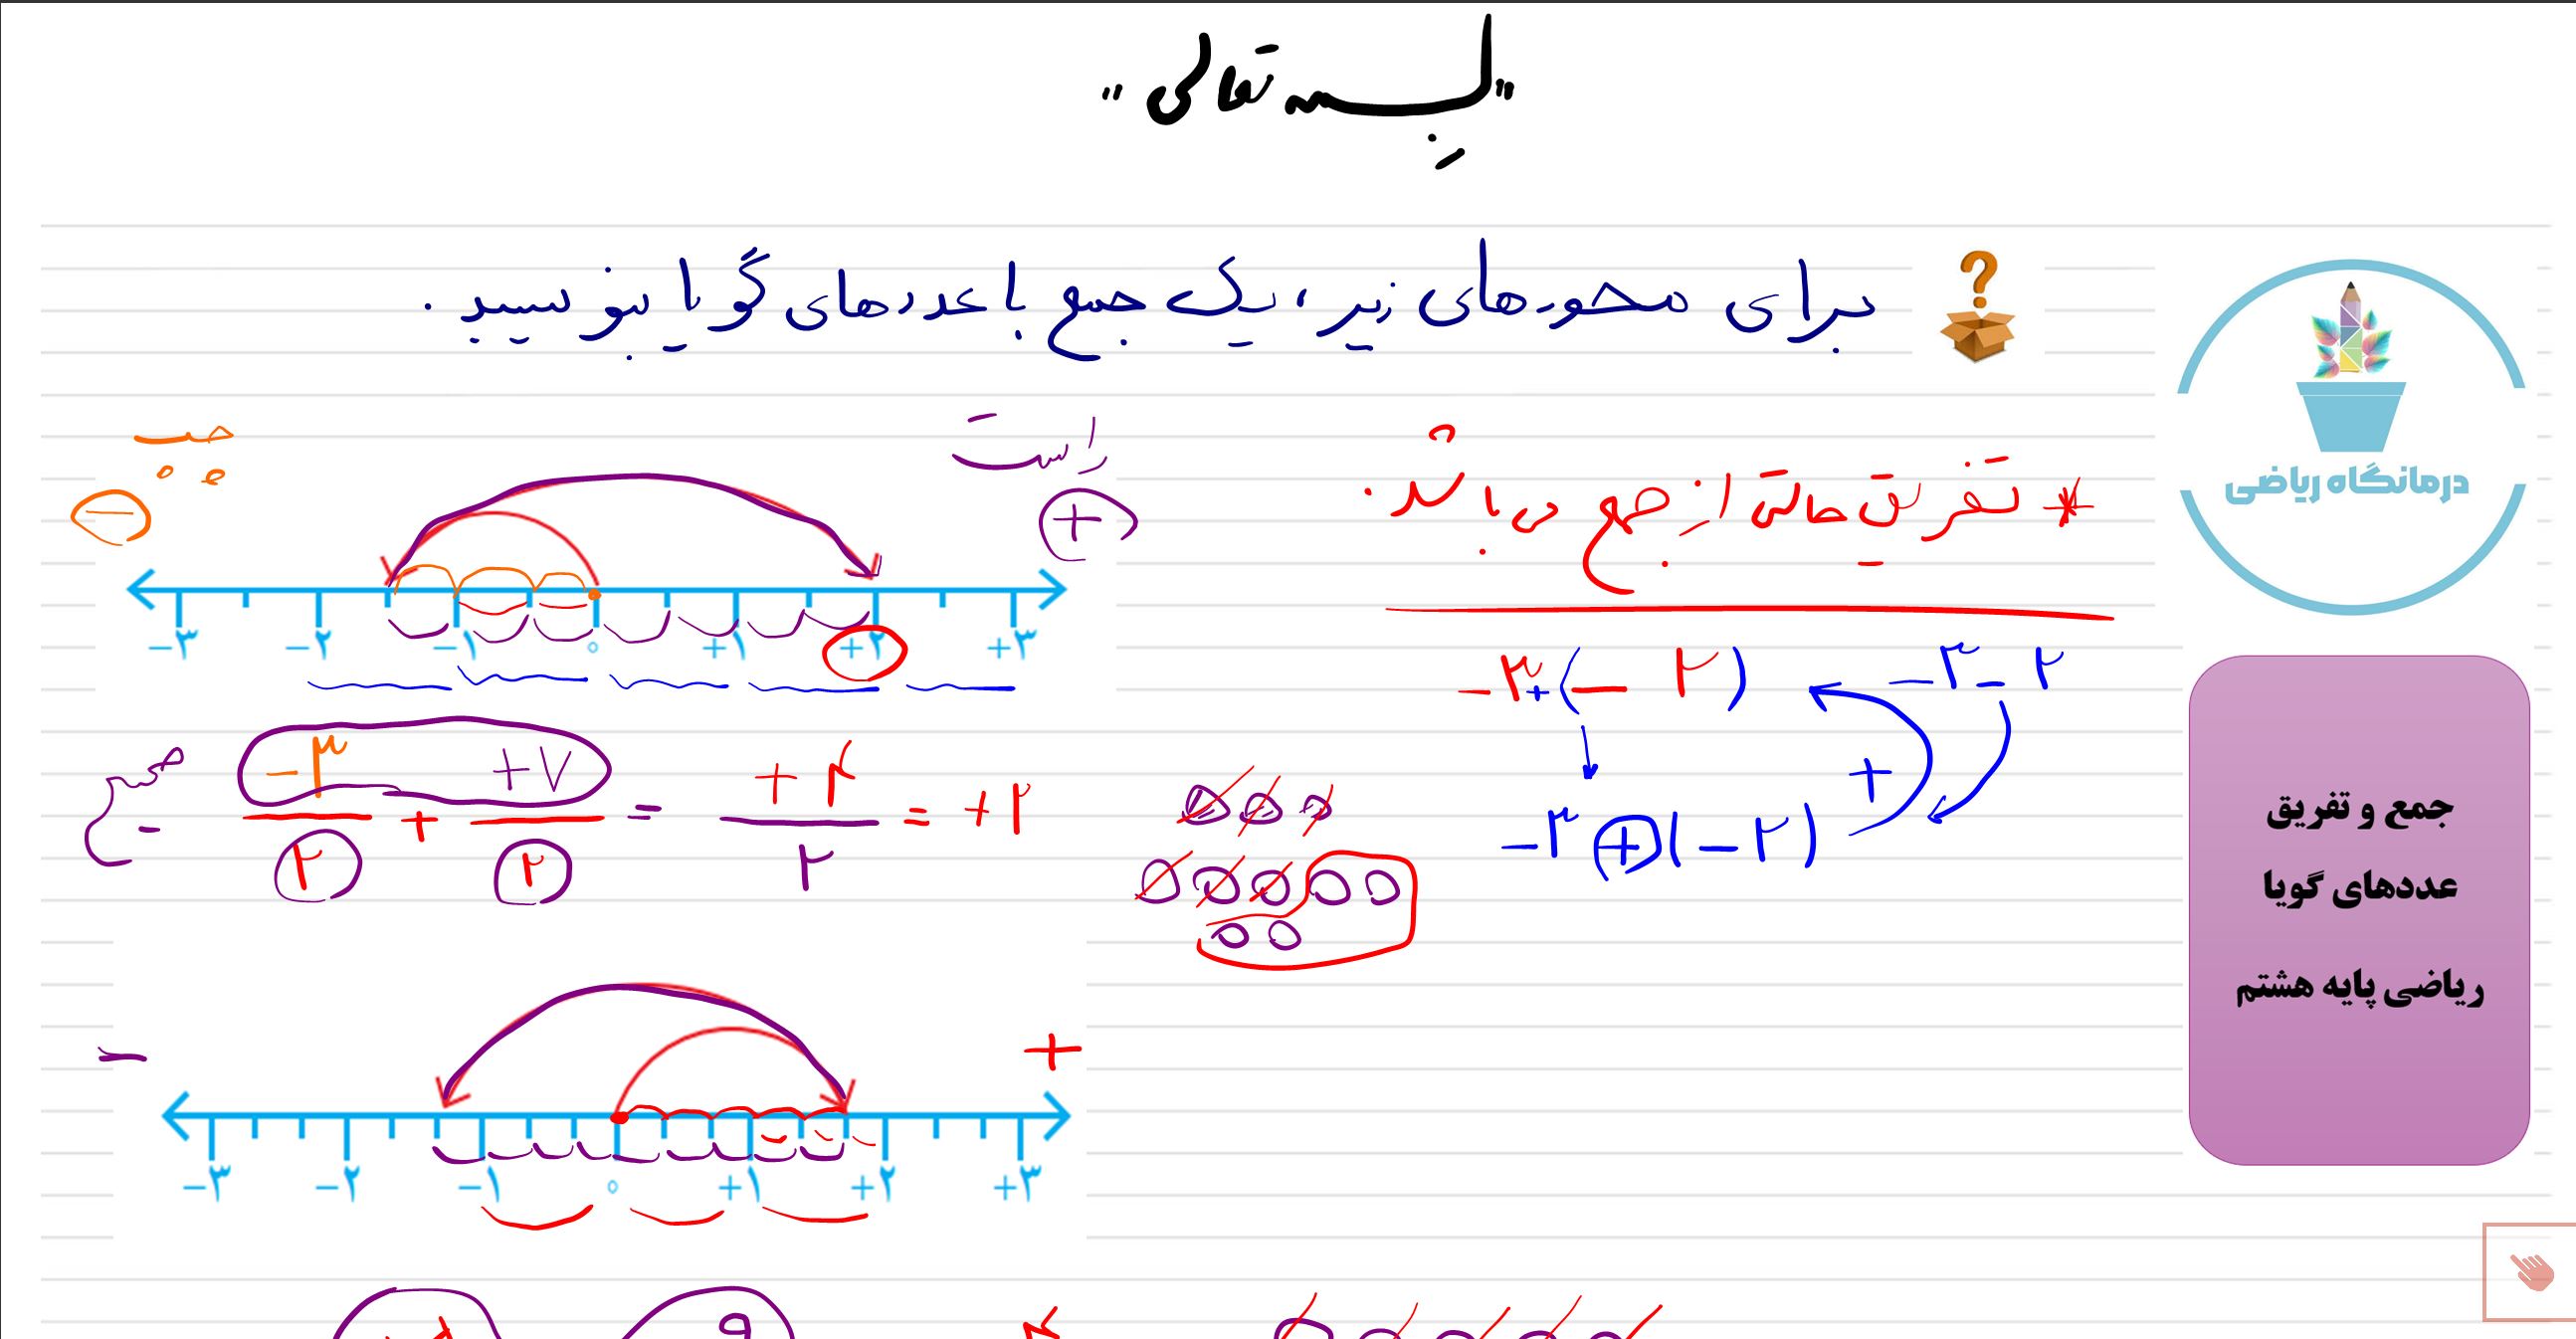 "بسمه تعالی"
برای محورهای زیر، یک جمع با عددهای گویا بنویسید.
درمانگاه ریاضی
چپ
راست
* تفریق حالتی از جمع می باشد.
− +
−۳ −۲ −۱ ۰ +۱ +۲ +۳
−۳+(−۲) −۳−۲
صحیح −۳/۲ + +۷/۲ = +۴/۲ = +۲
−۳+(−۲) +
جمع و تفریق
عددهای گویا
ریاضی پایه هشتم
− +
−۳ −۲ −۱ ۰ +۱ +۲ +۳